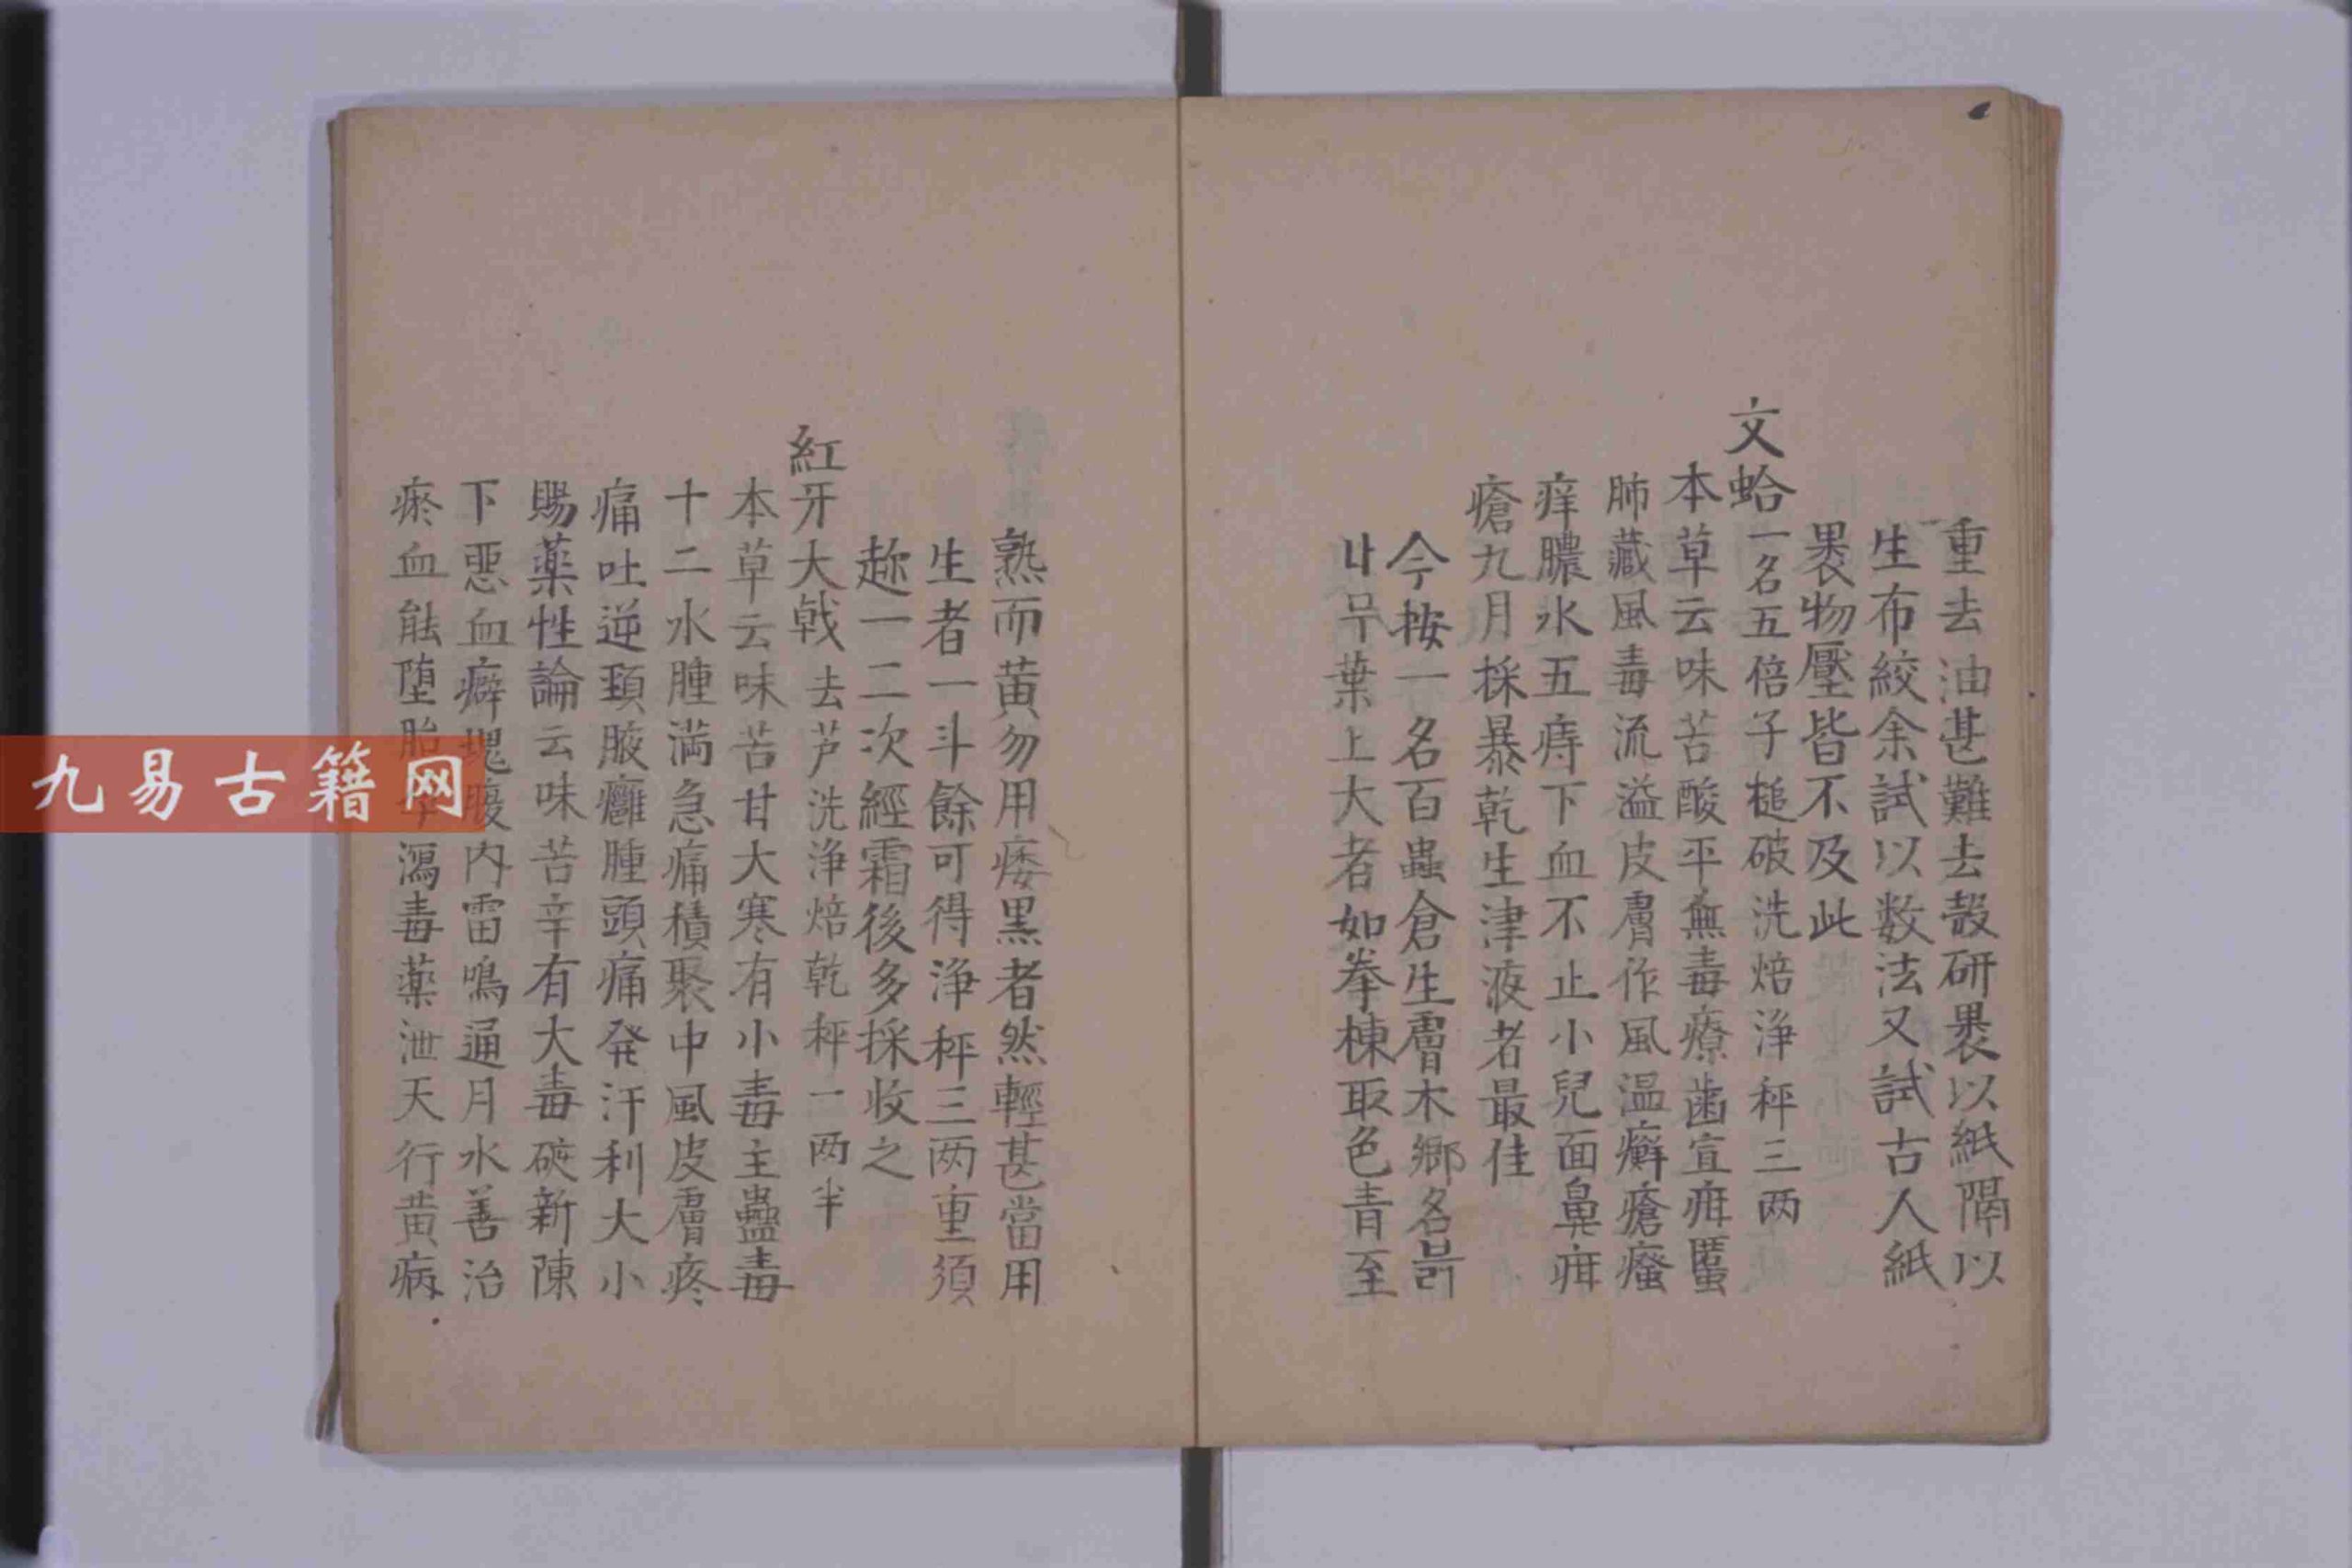 重去油甚難去殼研褁以紙隔以
生布絞余試以数法又試古人紙
褁物壓皆不及此
文蛤一名五倍子槌破洗焙浄秤三两
本草云味苦酸平無毒療歯宣疳䘌
肺藏風毒流溢皮膚作風温癬瘡瘙
痒膿水五痔下血不止小兒面鼻疳
瘡九月採暴乾生津液者最佳
今按一名百蟲倉生膚木鄉名븕
나모葉上大者如拳棟取色青至
熟而黄勿用痿黒者然輕甚當用
生者一斗餘可得浄秤三两重須
趂一二次經霜後多採收之
紅牙大戟去芦洗浄焙乾秤一两半
本草云味苦甘大寒有小毒主蠱毒
十二水腫満急痛積聚中風皮膚疼
痛吐逆頸腋癰腫頭痛発汗利大小
賜薬性論云味苦辛有大毒破新陳
下悪血癖塊腹内雷鳴通月水善治
瘀血能堕胎孕瀉毒薬泄天行黄病
九易古籍网